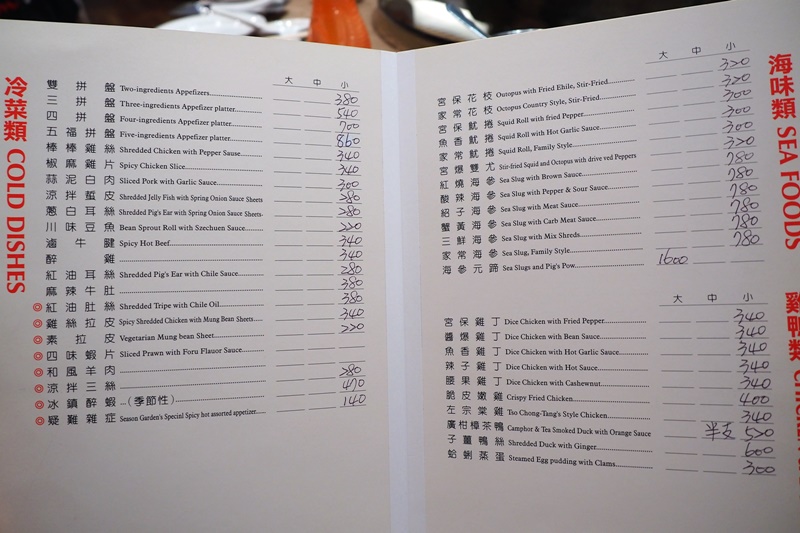 冷菜類 COLD DISHES
大 中 小
雙拼盤 Two-ingredients Appefizers 380
三拼盤 Three-ingredients Appefizer platter 540
四拼盤 Four-ingredients Appefizer platter 700
五福拼盤 Five-ingredients Appefizer platter 860
棒棒雞絲 Shredded Chicken with Pepper Sause 340
椒麻雞片 Spicy Chicken Slice 340
蒜泥白肉 Sliced Pork with Garlic Sauce 300
涼拌蜇皮 Shredded Jelly Fish with Spring Onion Sause Sheets 280
蔥白耳絲 Shredded Pig's Ear with Spring Onion Sause Sheets 280
川味豆魚 Bean Sprout Roll with Szechuen Sauce 220
滷牛腱 Spicy Hot Beef 340
醉雞 340
紅油耳絲 Shredded Pig's Ear with Chile Sauce 280
麻辣牛肚 380
◎紅油肚絲 Shredded Tripe with Chile Oil 380
◎雞絲拉皮 Spicy Shredded Chicken with Mung Bean Sheets 340
◎素拉皮 Vegetarian Mung bean Sheet 220
◎四味蝦片 Sliced Prawn with Foru Flauor Sauce
◎和風羊肉
◎涼拌三絲 280
◎冰鎮醉蝦 ...(季節性) 470
◎疑難雜症 Season Garden's Specinl Spicy hot assorted appetizer 140
海味類 SEA FOODS
大 中 小
宮保花枝 Outopus with Fried Ehile, Stir-Fried 320
家常花枝 Octopus Country Style, Stir-Fried 320
宮保魷捲 Squid Roll with fried Pepper 300
魚香魷捲 Squid Roll with Hot Garlic Sauce 300
家常魷捲 Squid Roll, Family Style 300
宮爆雙尤 Stir-fried Squid and Octopus with drive ved Peppers 320
紅燒海參 Sea Slug with Brown Sauce 780
酸辣海參 Sea Slug with Pepper & Sour Sauce 780
紹子海參 Sea Slug with Meat Sauce 780
蟹黃海參 Sea Slug with Carb Meat Sauce 780
三鮮海參 Sea Slug with Mix Shreds 780
家常海參 Sea Slug, Family Style 780
海參元蹄 Sea Slugs and Pig's Pow 1600
雞鴨類 CHICKEN
大 中 小
宮保雞丁 Dice Chicken with Fried Pepper 340
醬爆雞丁 Dice Chicken with Bean Sauce 340
魚香雞丁 Dice Chicken with Hot Garlic Sauce 340
辣子雞丁 Dice Chicken with Hot Sauce 340
腰果雞丁 Dice Chicken with Cashewnut 340
脆皮嫩雞 Crispy Fried Chicken 400
左宗棠雞 Tso Chong-Tang's Style Chicken 340
廣柑樟茶鴨 Camphor & Tea Smoked Duck with Orange Sauce 半支 520
子薑鴨絲 Shredded Duck with Ginger 600
蛤蜊蒸蛋 Steamed Egg pudding with Clams 300